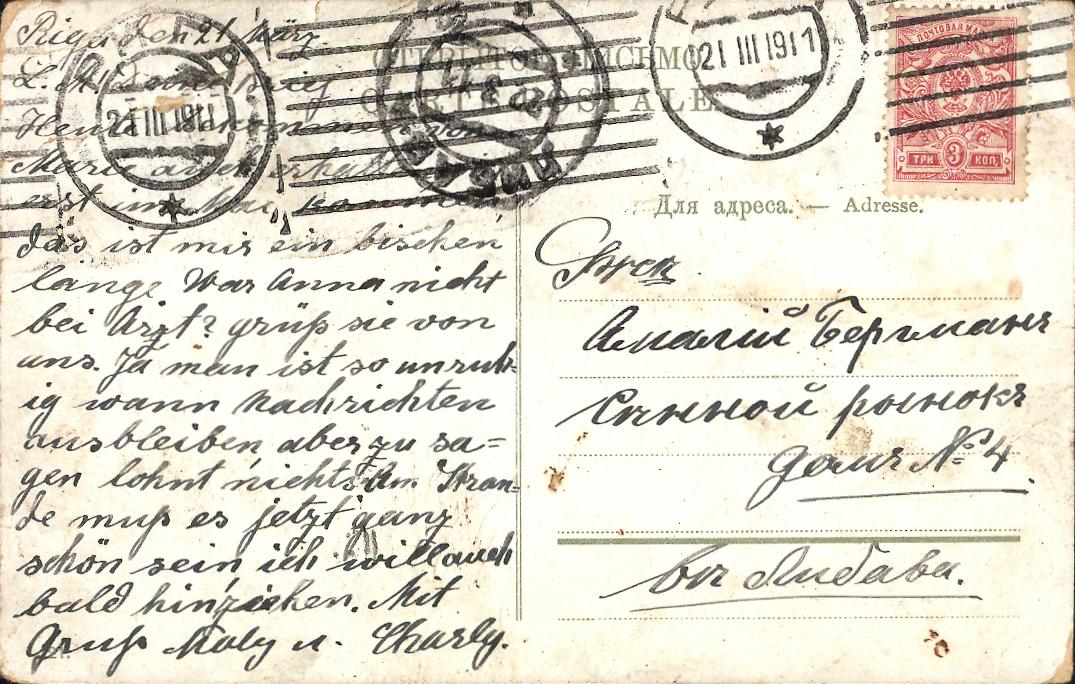 Riga den 21 März.
L. A
Heute von
Mari auch erhalten
erst im Mai kommen
das ist mir ein bischen
lange War Anna nicht
bei Arzt? grüß sie von
uns. Ja man ist so unruh-
ig wann Nachrichten
ausbleiben, aber zu sa=
gen lohnt nichts. Am Stran-
de muß es jetzt ganz
schön sein ich will auch
bald hinziehen. Mit
Gruß u. Charly.
21 III 1911
20 3 11
21 III 1911
ОТКРЫТОЕ ПИСЬМО
CARTE POSTALE
ПОЧТОВАЯ МАРКА
ТРИ 3 КОП.
Для адреса. — Adresse.
Амалій Бергманъ
Сѣнной рынокъ
домъ № 4
въ Либавѣ.